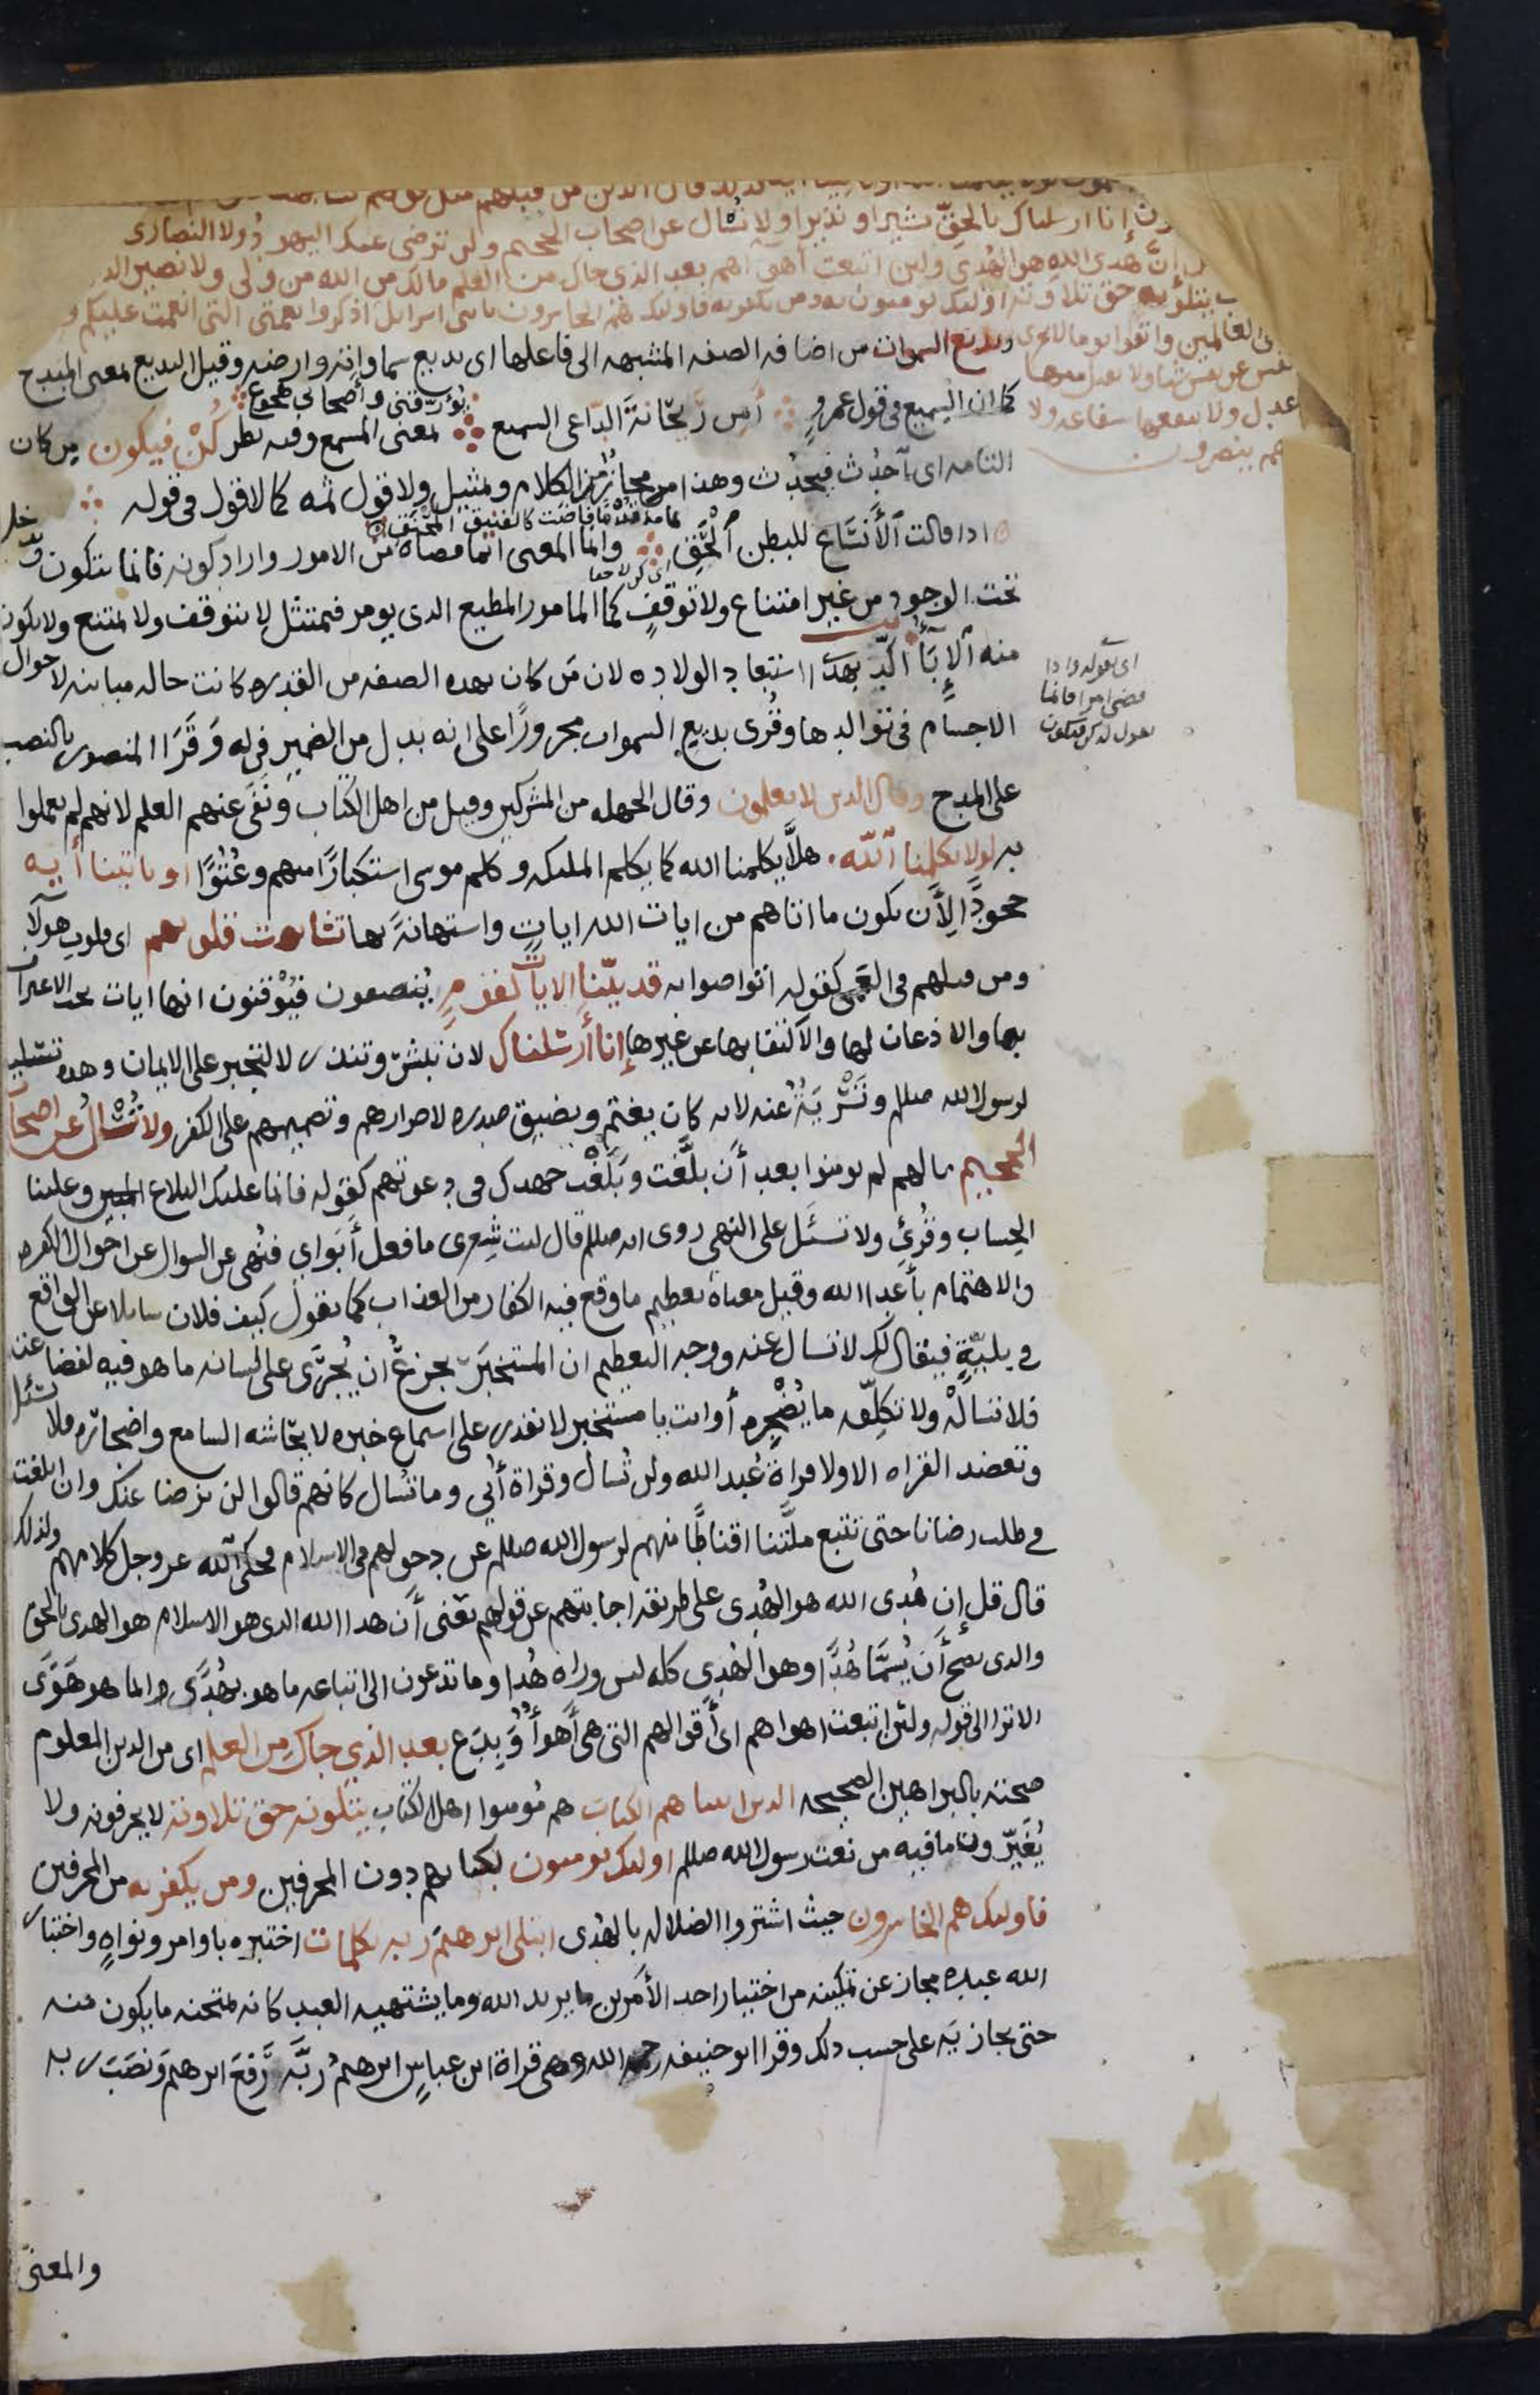 إنا ارسلناك بالحق بشيرا ونذيرا ولا تسال عن اصحاب الجحيم ولن ترضى عنك اليهود ولا النصارى
إن هدى الله هو الهدى ولين اتبعت اهوآهم بعد الذى جاك من العلم مالك من الله من ولى ولا نصير
يتلونه حق تلاوته اولئك يومنون به ومن يكفر به فاولئك هم الخاسرون يا بنى اسرايل اذكروا نعمتى التى انعمت عليكم
العالمين واتقوا يوما لا تجزى
نفس عن نفس شيا ولا يقبل منها
عدل ولا ينفعها شفاعه ولا
هم ينصرون
بديع السموات من اضافه الصفه المشبهه الى فاعلها اى بديع سماواته وارضه وقيل البديع بمعنى المبدع
كما ان السميع فى قول عمرو أمن ريحانة الداعى السميع يؤرقنى وأصحابى هجوع بمعنى المسمع وفيه نظر كن فيكون من كان
التامه اى آحدث فيحدث وهذا مجاز من الكلام وتمثيل ولا قول ثمه كما لا قول فى قوله
اذا قالت الأنساع للبطن الحق وانما المعنى انما قضاه من الامور واراد كونه فانما يتكون
تحت الوجود من غير امتناع ولا توقف كما المامور المطيع الذى يومر فيمتثل لا يتوقف ولا يمتنع ولا يكون
منه الإبآ اكد بهذا استبعاد الولاده لان من كان بهده الصفه من القدره كانت حاله مباينه لاحوال
اى بقوله واذا
قضى امرا فانما
يقول له كن فيكون
الاجسام فى توالدها وقرى بديع السموات مجرورا على انه بدل من الضمير فى له وقرا المنصور بالنصب
على المدح وقال الذين لا يعلمون وقال الجهله من المشركين وقيل من اهل الكتاب ونفى عنهم العلم لانهم لم يعملوا
به لولا يكلمنا الله هلا يكلمنا الله كما يكلم الملئكه وكلم موسى استكبارا منهم وعتوا او تاتينا أيه
جحودا لأن يكون ما اتاهم من ايات الله ايات واستهانة بها تشابهت قلوبهم اى قلوب هولآ
ومن قبلهم فى العمى كقوله اتواصوا به قد بينا الايات لقوم ينصفون فيوقنون انها ايات يجب الاعتراف
بها والاذعان لها والاكتفا بها عن غيرها إنا أرسلناك لان تبشر وتنذر لا لتجبر على الايمان وهده تسليه
لرسول الله صللم وتسرية عنه لانه كان يغتم ويضيق صدره لاصرارهم وتصميمهم على الكفر ولا تسال عن اصحاب
الجحيم مالهم لم يومنوا بعد أن بلغت وبلغت جهدك فى دعوتهم كقوله فانما عليك البلاغ المبين وعلينا
الحساب وقرئ ولا تسئل على النهى روى انه صللم قال ليت شعرى ما فعل أبواى فنهى عن السوال عن احوال الكفره
والاهتمام بأعدا الله وقيل معناه تعظيم ما وقع فيه الكفار من العذاب كما تقول كيف فلان سايلا عن الواقع
فى بلية فيقال لك لا تسال عنه ووجه التعظيم ان المستخبر يجزع ان يجرى على لسانه ما هو فيه لفضاعته
فلا تساله ولا تكلفه ما يضجره أو انت يا مستخبر لا تقدر على استماع خبره لايحاشه السامع واضجاره فلا تسئل
وتعضد القراه الاولا قراة عبد الله ولن تسال وقراة أبى وما تسال كانهم قالوا لن نرضا عنك وان ابلغت
فى طلب رضانا حتى تتبع ملتنا اقناطا منهم لرسول الله صللم عن دخولهم فى الاسلام فحكى الله عز وجل كلامهم ولذلك
قال قل إن هدى الله هو الهدى على طريقه اجابتهم عن قولهم يعنى أن هدا الله الذى هو الاسلام هو الهدى بالحق
والذى يصح أن يسما هدا وهو الهدى كله ليس وراه هدا وما تدعون الى اتباعه ما هو بهدى وانما هو هوى
الا ترا الى قوله ولئن اتبعت اهواهم اى أقوالهم التى هى أهوآ وبدع بعد الذى جاك من العلم اى من الدين المعلوم
صحته بالبراهين الصحيحه الذين اتيناهم الكتاب هم مومنوا اهل الكتاب يتلونه حق تلاوته لا يحرفونه ولا
يغيرون ما فيه من نعت رسول الله صللم اولئك يومنون بكتابهم دون المحرفين ومن يكفر به من المحرفين
فاولئك هم الخاسرون حيث اشتروا الضلاله بالهدى ابتلى ابرهيم ربه بكلمات اختبره باوامر ونواه واختبار
الله عبده مجاز عن تمكينه من اختيار احد الأمرين ما يريد الله وما يشتهيه العبد كانه يمتحنه ما يكون منه
حتى يجازيه على حسب ذلك وقرا ابو حنيفه رحمه الله وهى قراة ابن عباس ابرهيم ربه رفع ابرهيم ونصب ربه
والمعنى